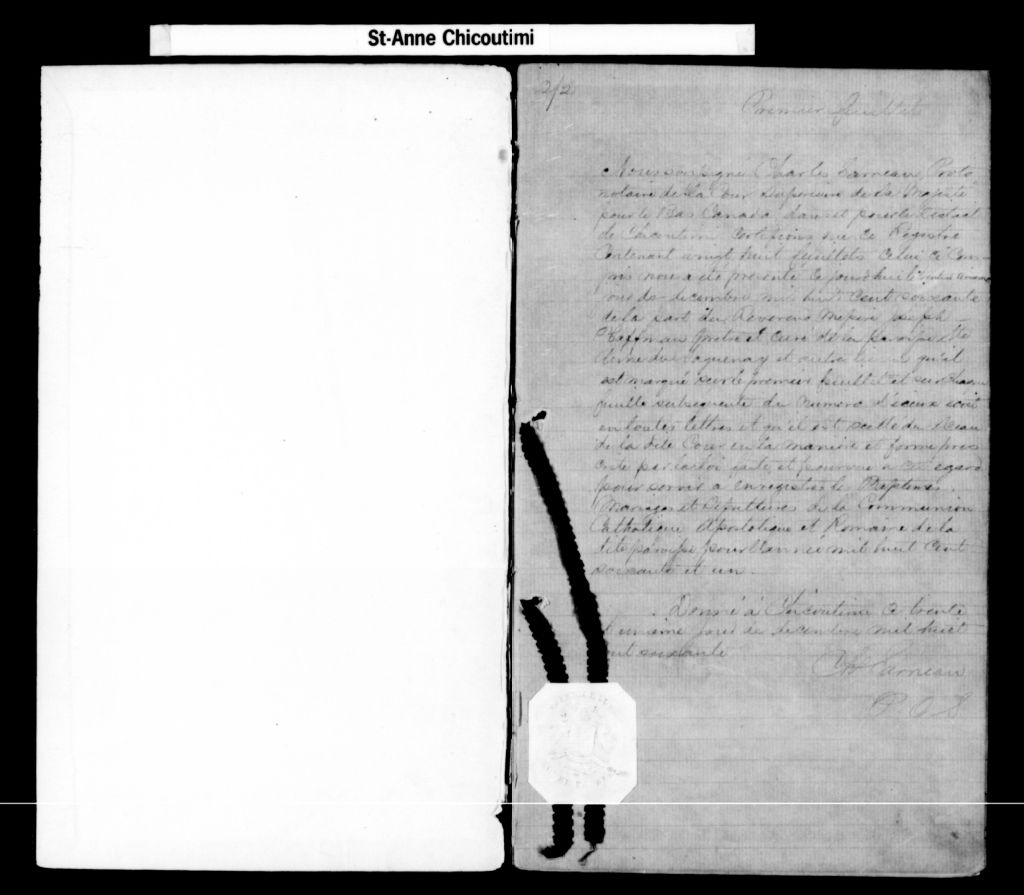 St-Anne Chicoutimi
2/2
Premier feuillet
Nous soussigné Charles Garneau Proto
notaire de la Cour Supérieure de Sa Majesté
pour le Bas Canada dans et pour le District
de Chicoutimi certifions que ce Régistre
Contenant vingt huit feuillets celui ci Com
pris nous a été présenté ce jourd'hui le
jour de decembre mil huit cent soixante
de la part du Révérend Messire
prêtre et curé de la paroisse Ste
Anne du Saguenay et outre qu'il
est marqué sur le premier feuillet et sur chaque
feuille subsequente du numero d'iceux écrit
en toutes lettres et qu'il est scellé du Sceau
de la dite Cour en la manière et forme pres
crite par la loi faite et pourvue a cet égard
pour servir a enregistrer les Baptêmes
Mariages et Sépultures de la Communion
Catholique Apostolique et Romaine de la
dite paroisse pour l'année mil huit cent
soixante et un.
Donné à Chicoutimi ce trente
et unième jour de decembre mil huit
cent soixante
Chs Garneau
P. C. S